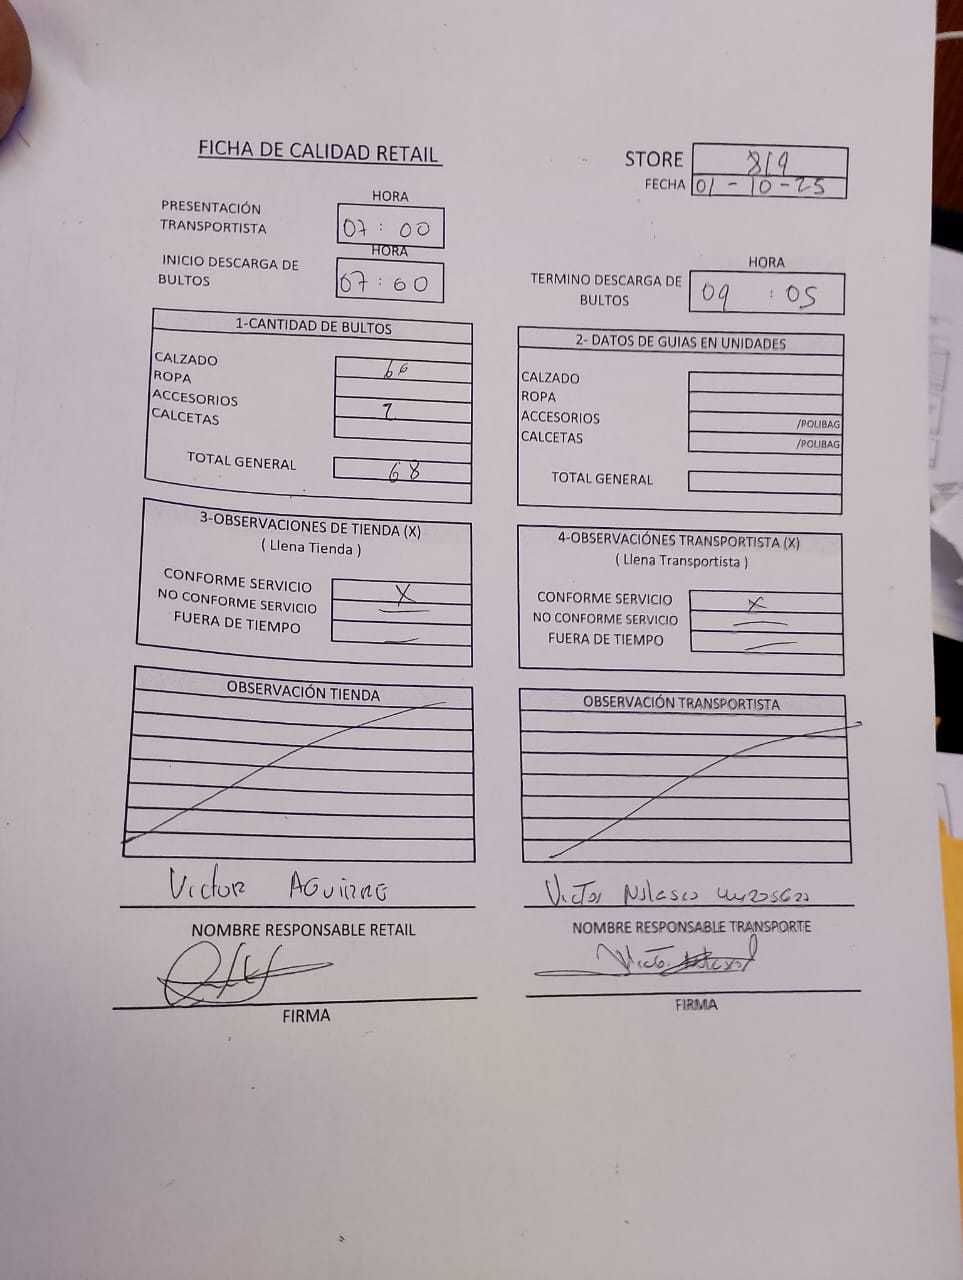 FICHA DE CALIDAD RETAIL
STORE 819
FECHA 01-10-25
HORA
PRESENTACIÓN TRANSPORTISTA 07:00
HORA
INICIO DESCARGA DE BULTOS 07:60
HORA
TERMINO DESCARGA DE BULTOS 09:05
1-CANTIDAD DE BULTOS
CALZADO
ROPA
ACCESORIOS
CALCETAS
TOTAL GENERAL 68
2- DATOS DE GUIAS EN UNIDADES
CALZADO
ROPA
ACCESORIOS /POLIBAG
CALCETAS /POLIBAG
TOTAL GENERAL
3-OBSERVACIONES DE TIENDA (X)
( Llena Tienda )
CONFORME SERVICIO X
NO CONFORME SERVICIO —
FUERA DE TIEMPO —
4-OBSERVACIÓNES TRANSPORTISTA (X)
( Llena Transportista )
CONFORME SERVICIO X
NO CONFORME SERVICIO —
FUERA DE TIEMPO —
OBSERVACIÓN TIENDA
OBSERVACIÓN TRANSPORTISTA
Victor AGuirre
NOMBRE RESPONSABLE RETAIL
FIRMA
Victor Nolasco
NOMBRE RESPONSABLE TRANSPORTE
Victor Nolasco
FIRMA